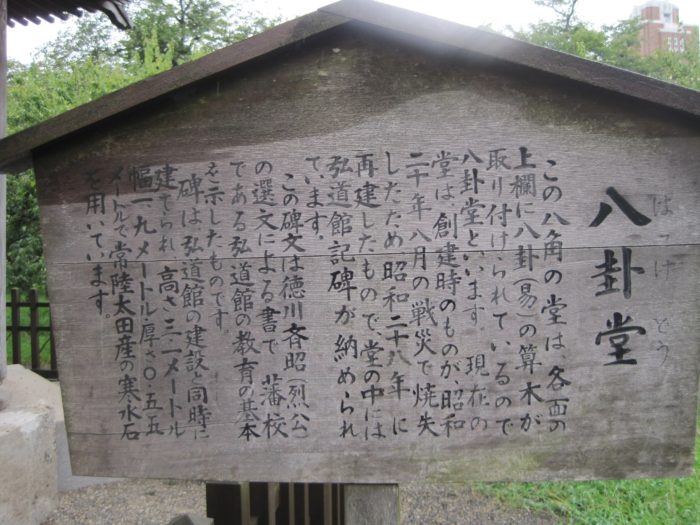 八卦堂
はっけどう
この八角の堂は、各面の
上欄に八卦(易)の算木が
取り付けられているので
八卦堂といいます。現在の
堂は創建時のものが、昭和
二十年八月の戦災で焼失
したため昭和二十八年に
再建したもので、堂の中には
弘道館記碑が納められ
ています。
この碑文は徳川斉昭(烈公)
の選文による書で、藩校
である弘道館の教育の基本
を示したものです。
碑は弘道館の建設と同時に
建てられ、高さ三・一メートル
幅一・九メートル厚さ〇・五五
メートルで常陸太田産の寒水石
を用いています。